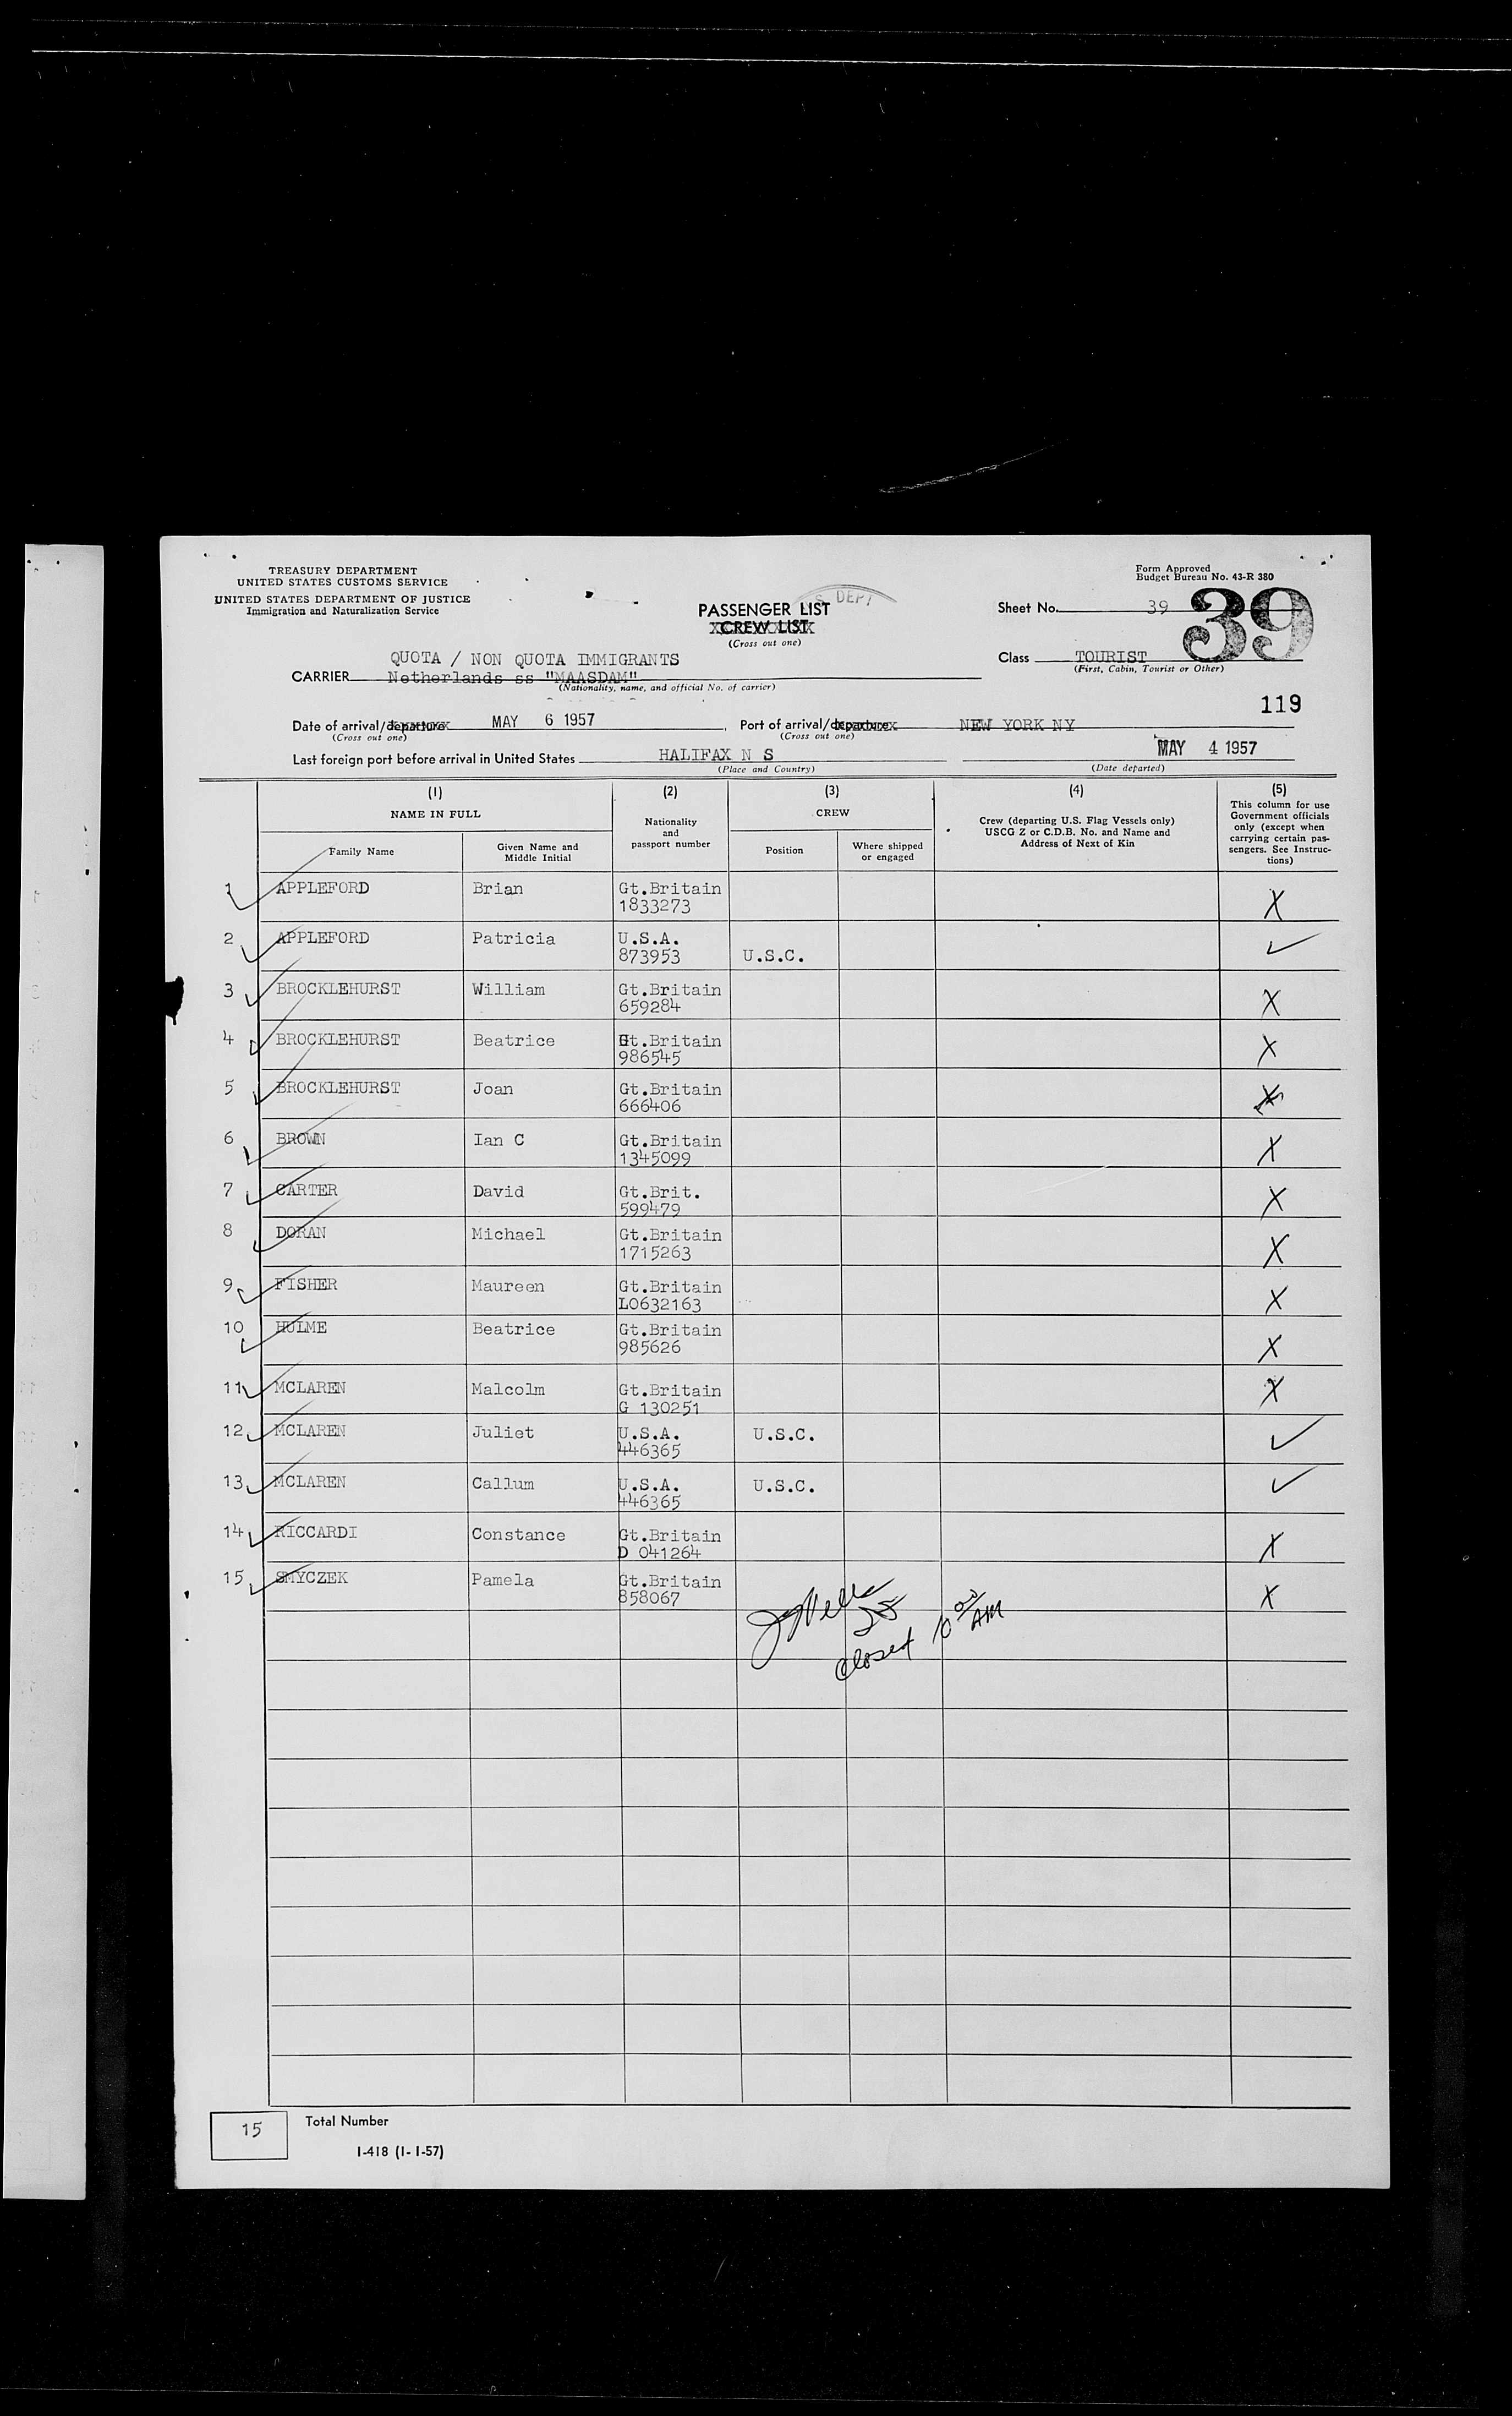 TREASURY DEPARTMENT
UNITED STATES CUSTOMS SERVICE
UNITED STATES DEPARTMENT OF JUSTICE
Immigration and Naturalization Service
Form Approved
Budget Bureau No. 43-R 380
DEPT
PASSENGER LIST
CREW LIST
(Cross out one)
Sheet No. 39
39
QUOTA / NON QUOTA IMMIGRANTS
CARRIER Netherlands ss "MAASDAM"
(Nationality, name, and official No. of carrier)
Class TOURIST
(First, Cabin, Tourist or Other)
119
Date of arrival/departure MAY 6 1957, Port of arrival/departure NEW YORK NY
(Cross out one) (Cross out one)
Last foreign port before arrival in United States HALIFAX N S MAY 4 1957
(Place and Country) (Date departed)
(1) (2) (3) (4) (5)
NAME IN FULL
Nationality and passport number
CREW
Crew (departing U.S. Flag Vessels only) USCG Z or C.D.B. No. and Name and Address of Next of Kin
This column for use Government officials only (except when carrying certain passengers. See Instructions)
Family Name Given Name and Middle Initial Position Where shipped or engaged
1 APPLEFORD Brian Gt.Britain X
1833273
2 APPLEFORD Patricia U.S.A. ✓
873953 U.S.C.
3 BROCKLEHURST William Gt.Britain X
659284
4 BROCKLEHURST Beatrice Gt.Britain X
986545
5 BROCKLEHURST Joan Gt.Britain X
666406
6 BROWN Ian C Gt.Britain X
1345099
7 CARTER David Gt.Brit. X
599479
8 DORAN Michael Gt.Britain X
1715263
9 FISHER Maureen Gt.Britain X
L0632163
10 HULME Beatrice Gt.Britain X
985626
11 MCLAREN Malcolm Gt.Britain X
G 130251
12 MCLAREN Juliet U.S.A. U.S.C. ✓
446365
13 MCLAREN Callum U.S.A. U.S.C. ✓
446365
14 RICCARDI Constance Gt.Britain X
D 041264
15 SMYCZEK Pamela Gt.Britain X
858067
28
closed 10 00 AM
15 Total Number
I-418 (1-1-57)